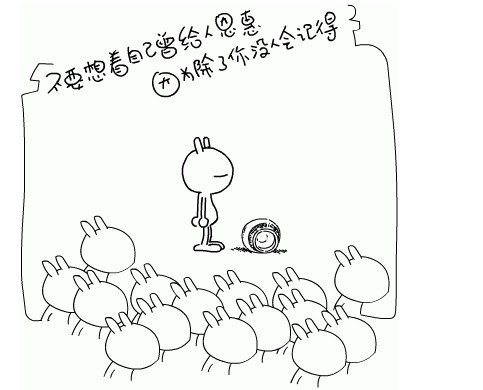 不要想着自己曾给人恩惠
因为除了你没人会记得